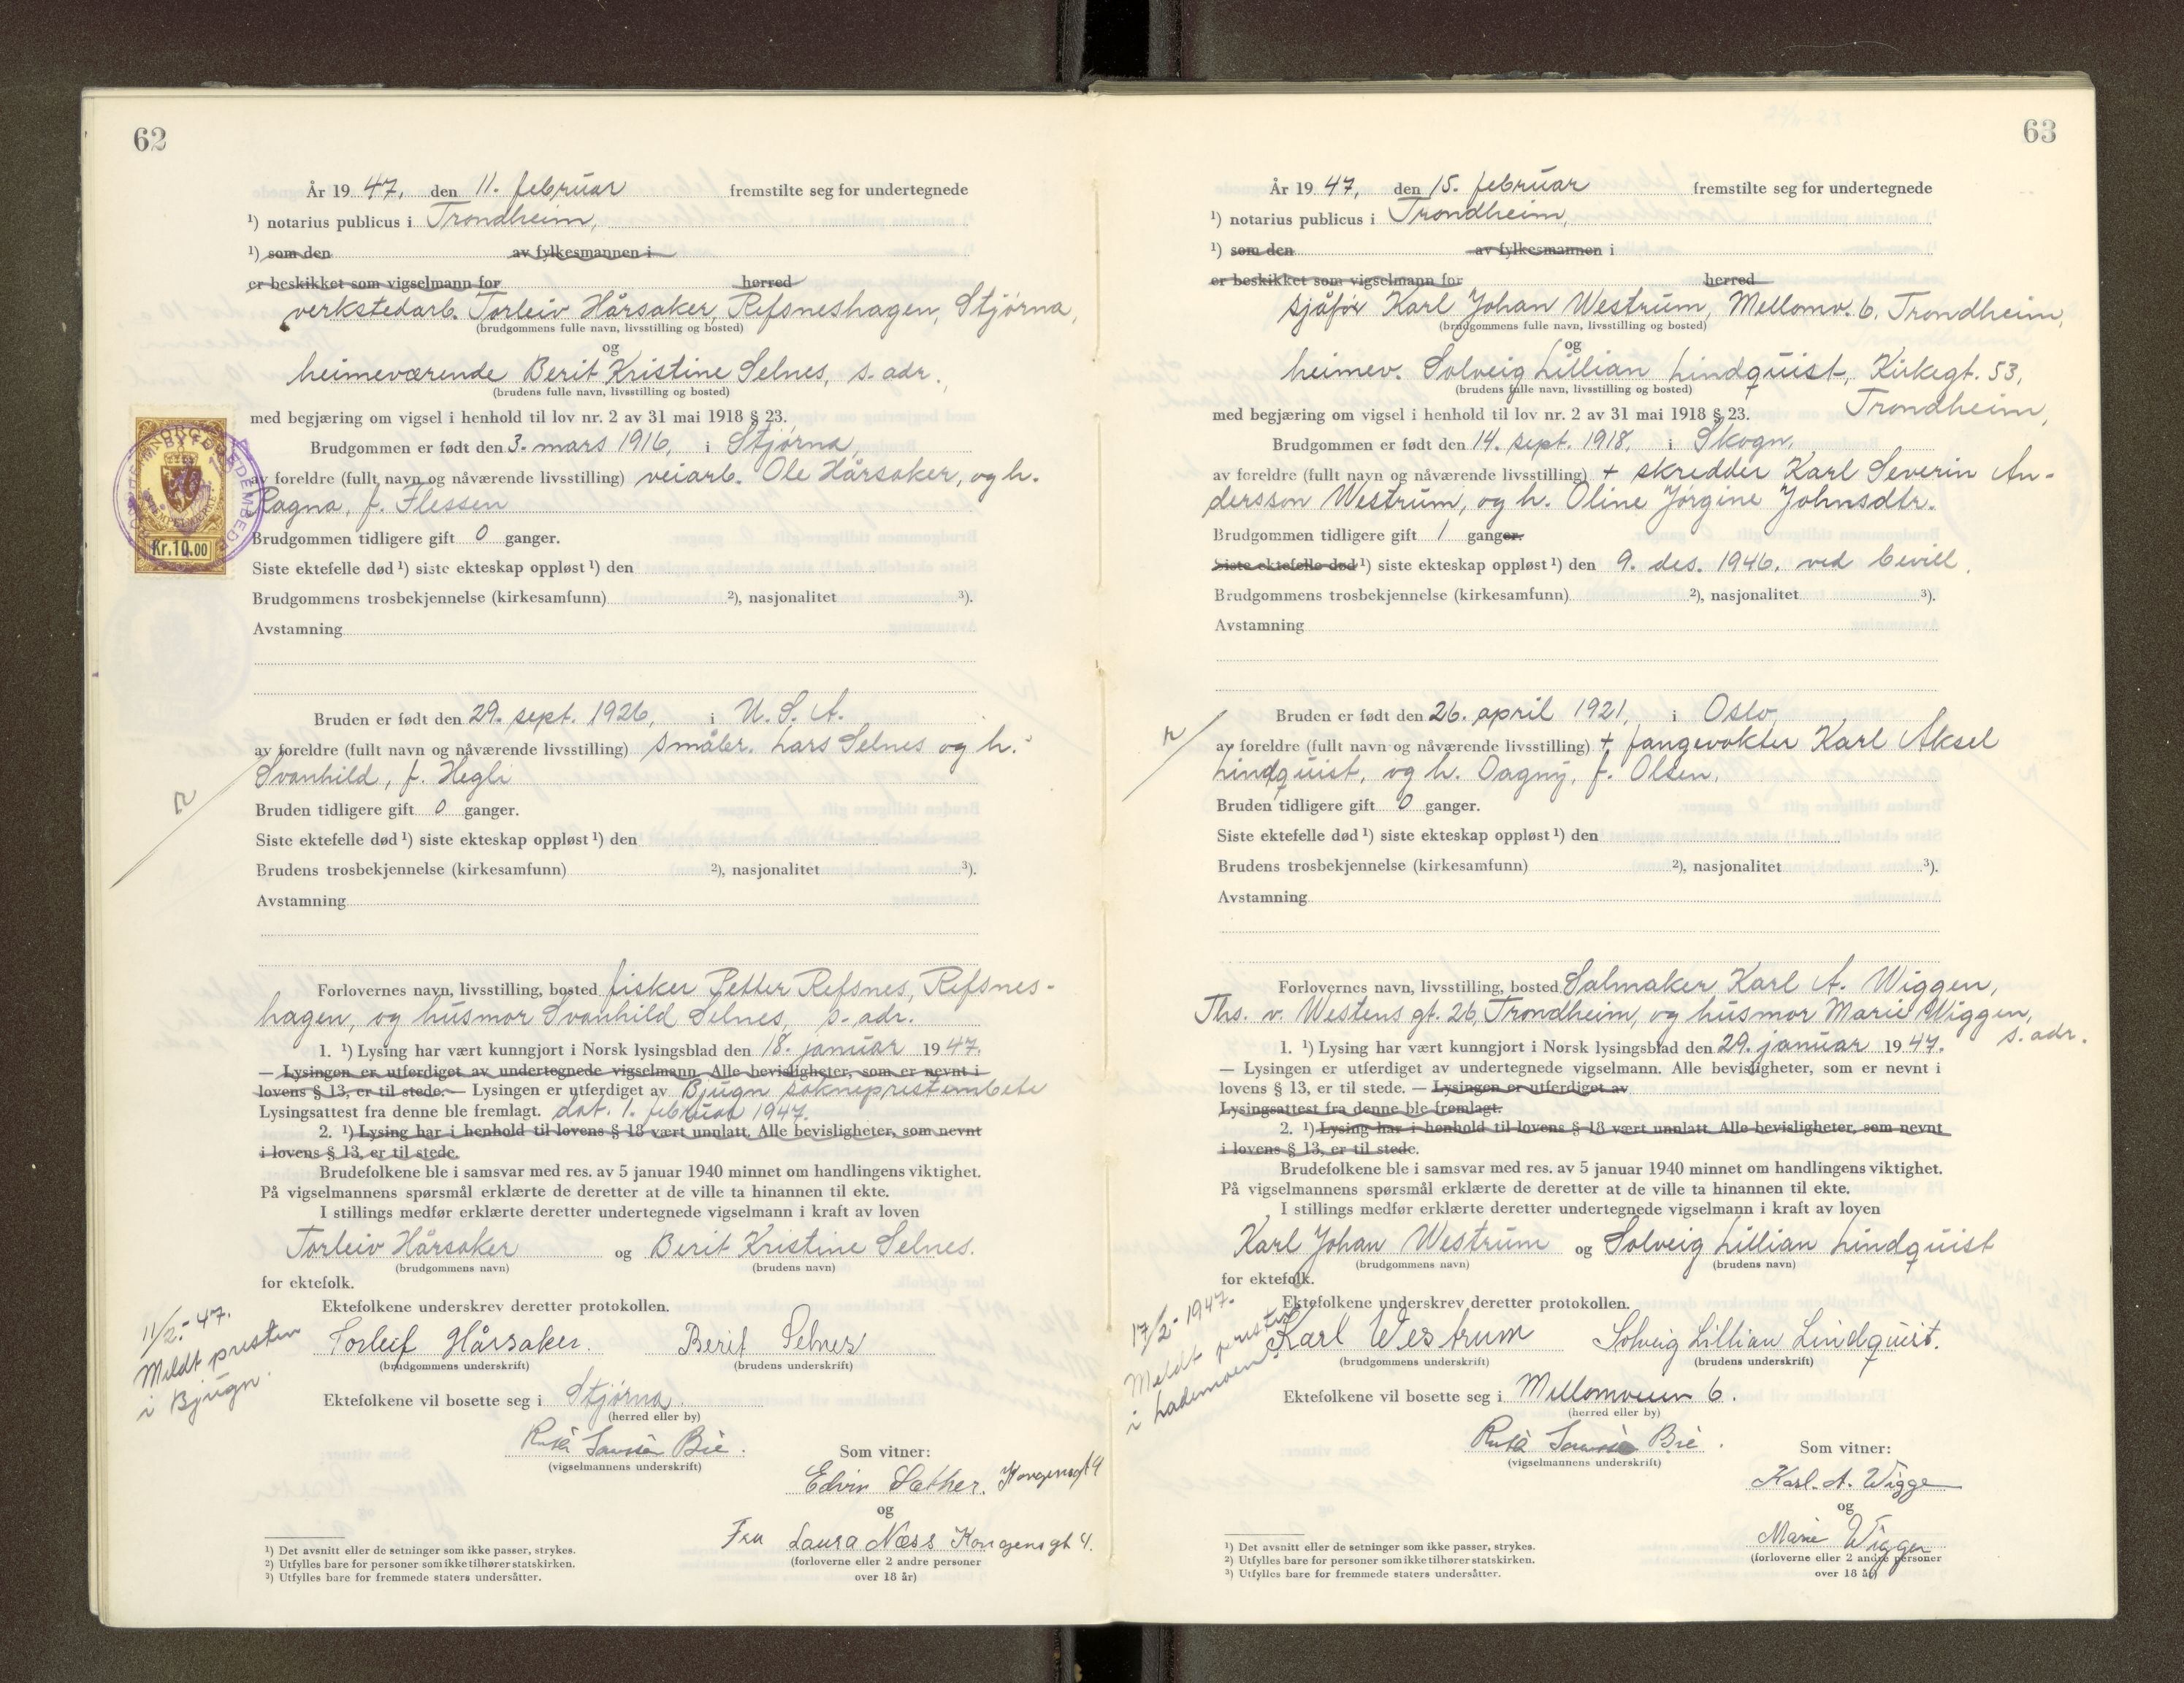 62
År 19 47, den 11. februar fremstilte seg for undertegnede
¹) notarius publicus i Trondheim,
¹) som den av fylkesmannen i
er beskikket som vigselmann for herred
verkstedarb. Torleiv Hårsaker, Refsneshagen, Stjørna,
(brudgommens fulle navn, livsstilling og bosted)
og
heimeværende Berit Kristine Selnes, s. adr.,
(brudens fulle navn, livsstilling og bosted)
med begjæring om vigsel i henhold til lov nr. 2 av 31 mai 1918 § 23.
Brudgommen er født den 3. mars 1916, i Stjørna,
av foreldre (fullt navn og nåværende livsstilling) veiarb. Ole Hårsaker, og h.
Ragna, f. Flessen
Kr. 10.00
Brudgommen tidligere gift 0 ganger.
Siste ektefelle død ¹) siste ekteskap oppløst ¹) den
Brudgommens trosbekjennelse (kirkesamfunn) ²), nasjonalitet ³).
Avstamning
Bruden er født den 29. sept. 1926, i U. S. A.
av foreldre (fullt navn og nåværende livsstilling) småbr. Lars Selnes og h.
Svanhild, f. Hegli
Bruden tidligere gift 0 ganger.
Siste ektefelle død ¹) siste ekteskap oppløst ¹) den
Brudens trosbekjennelse (kirkesamfunn) ²), nasjonalitet ³).
Avstamning
Forlovernes navn, livsstilling, bosted fisker Petter Refsnes, Refsnes-
hagen, og husmor Svanhild Selnes, s. adr.
1. ¹) Lysing har vært kunngjort i Norsk lysingsblad den 18. januar 19 47.
— Lysingen er utferdiget av undertegnede vigselmann. Alle bevisligheter, som er nevnt i
lovens § 13, er til stede. — Lysingen er utferdiget av Bjugn sokneprestembete
Lysingsattest fra denne ble fremlagt. dat. 1. februar 1947.
2. ¹) Lysing har i henhold til lovens § 18 vært unnlatt. Alle bevisligheter, som nevnt
i lovens § 13, er til stede.
Brudefolkene ble i samsvar med res. av 5 januar 1940 minnet om handlingens viktighet.
På vigselmannens spørsmål erklærte de deretter at de ville ta hinannen til ekte.
I stillings medfør erklærte deretter undertegnede vigselmann i kraft av loven
Torleiv Hårsaker og Berit Kristine Selnes.
(brudgommens navn) (brudens navn)
for ektefolk.
Ektefolkene underskrev deretter protokollen.
11/2.- 47.
Meldt presten
i Bjugn.
Torleif Hårsaker. Berit Selnes
(brudgommens underskrift) (brudens underskrift)
Ektefolkene vil bosette seg i Stjørna.
(herred eller by)
Bie.
(vigselmannens underskrift)
Som vitner:
Edvin Sæther. Kongensgt 4
og
Fru Laura Næss Kongens gt 4.
(forloverne eller 2 andre personer
over 18 år)
¹) Det avsnitt eller de setninger som ikke passer, strykes.
²) Utfylles bare for personer som ikke tilhører statskirken.
³) Utfylles bare for fremmede staters undersåtter.
63
År 19 47, den 15. februar fremstilte seg for undertegnede
¹) notarius publicus i Trondheim,
¹) som den av fylkesmannen i
er beskikket som vigselmann for herred
sjåfør Karl Johan Westrum, Mellomv. 6, Trondheim,
(brudgommens fulle navn, livsstilling og bosted)
og
heimev. Solveig Lillian Lindquist, Kirkegt. 53,
(brudens fulle navn, livsstilling og bosted)
Trondheim,
med begjæring om vigsel i henhold til lov nr. 2 av 31 mai 1918 § 23.
Brudgommen er født den 14. sept. 1918, i Skogn,
av foreldre (fullt navn og nåværende livsstilling) + skredder Karl Severin An-
dersson Westrum, og h. Oline Jørgine Johnsdtr.
Brudgommen tidligere gift 1 ganger.
Siste ektefelle død ¹) siste ekteskap oppløst ¹) den 9. des. 1946, ved bevill.
Brudgommens trosbekjennelse (kirkesamfunn) ²), nasjonalitet ³).
Avstamning
Bruden er født den 26. april 1921, i Oslo,
av foreldre (fullt navn og nåværende livsstilling) + fangevokter Karl Aksel
Lindquist, og h. Dagny, f. Olsen.
Bruden tidligere gift 0 ganger.
Siste ektefelle død ¹) siste ekteskap oppløst ¹) den
Brudens trosbekjennelse (kirkesamfunn) ²), nasjonalitet ³).
Avstamning
Forlovernes navn, livsstilling, bosted Salmaker Karl A. Wiggen,
Ths. v. Westens gt. 26, Trondheim, og husmor Marie Wiggen,
s. adr.
1. ¹) Lysing har vært kunngjort i Norsk lysingsblad den 29. januar 19 47.
— Lysingen er utferdiget av undertegnede vigselmann. Alle bevisligheter, som er nevnt i
lovens § 13, er til stede. — Lysingen er utferdiget av
Lysingsattest fra denne ble fremlagt.
2. ¹) Lysing har i henhold til lovens § 18 vært unnlatt. Alle bevisligheter, som nevnt
i lovens § 13, er til stede.
Brudefolkene ble i samsvar med res. av 5 januar 1940 minnet om handlingens viktighet.
På vigselmannens spørsmål erklærte de deretter at de ville ta hinannen til ekte.
I stillings medfør erklærte deretter undertegnede vigselmann i kraft av loven
Karl Johan Westrum og Solveig Lillian Lindquist
(brudgommens navn) (brudens navn)
for ektefolk.
Ektefolkene underskrev deretter protokollen.
17/2- 1947.
Meldt presten
i Lademoen.
Karl Westrum Solveig Lillian Lindquist.
(brudgommens underskrift) (brudens underskrift)
Ektefolkene vil bosette seg i Mellomveien 6.
(herred eller by)
Bie.
(vigselmannens underskrift)
Som vitner:
Karl. A. Wigge
og
Marie Wiggen
(forloverne eller 2 andre personer
over 18 år)
¹) Det avsnitt eller de setninger som ikke passer, strykes.
²) Utfylles bare for personer som ikke tilhører statskirken.
³) Utfylles bare for fremmede staters undersåtter.